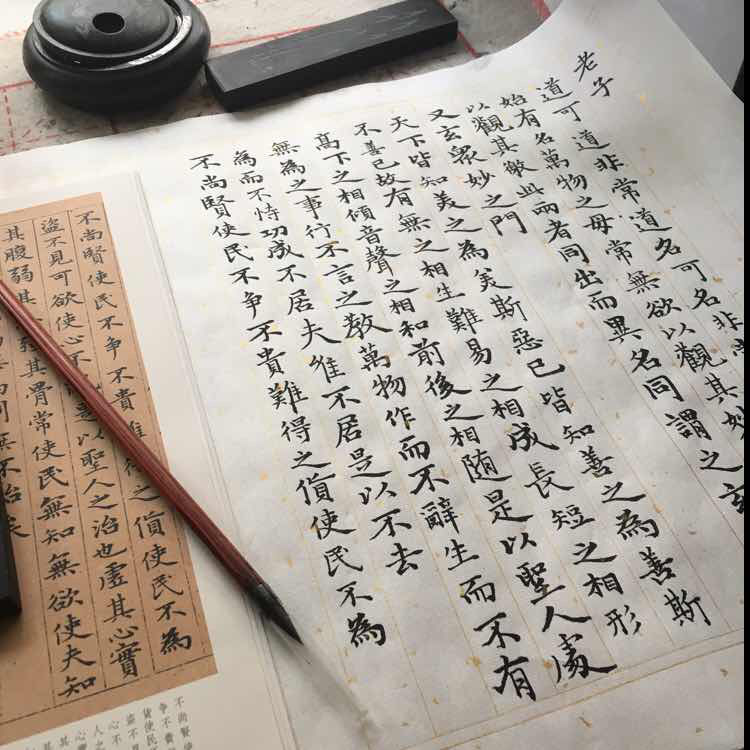 老子
道可道非常道名可名非常
始有名萬物之母常無欲以觀其妙
以觀其徼此兩者同出而異名同謂之玄
又玄衆妙之門
天下皆知美之為美斯惡已皆知善之為善斯
不善已故有無之相生難易之相成長短之相形
高下之相傾音聲之相和前後之相随是以聖人處
無為之事行不言之教萬物作而不辭生而不有
為而不恃功成不居夫惟不居是以不去
不尚賢使民不争不貴難得之貨使民不為
不尚賢使民不争不貴難得之貨使民不為
盜不見可欲使心不是以聖人之治也虛其心實
其腹弱其其骨常使民無知無欲使夫知
則無不治矣
不尚賢使
争不貴
貨使民
盜不見
心不
人之